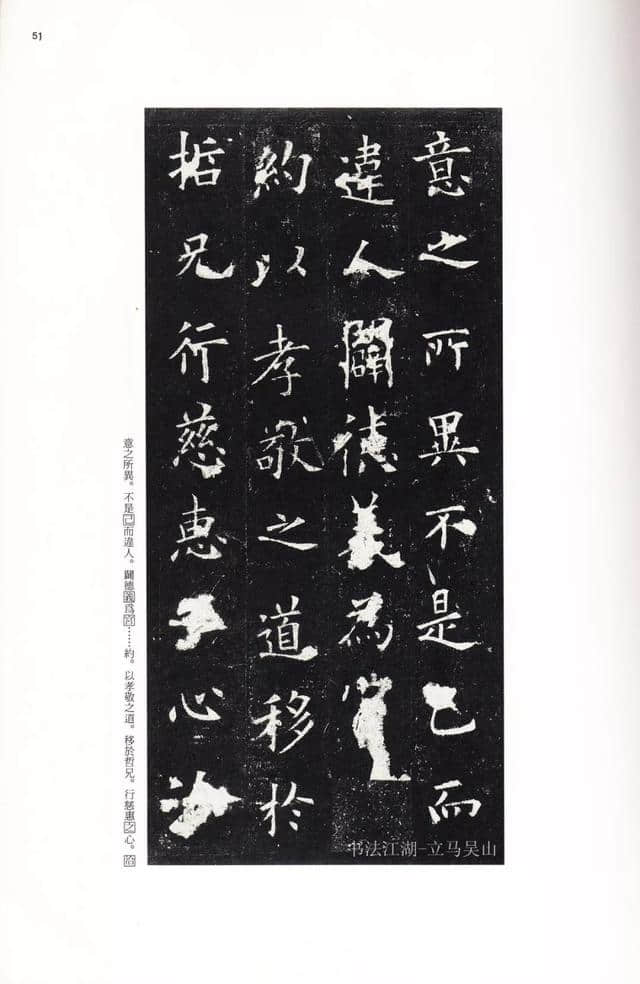 51
意之所異不是己而
違人闢德義為
約以孝敬之道移於
哲兄行慈惠心
意之所異。不是己而違人。闢德義爲宮……約。以孝敬之道。移於哲兄。行慈惠之心。
书法江湖-立马吴山